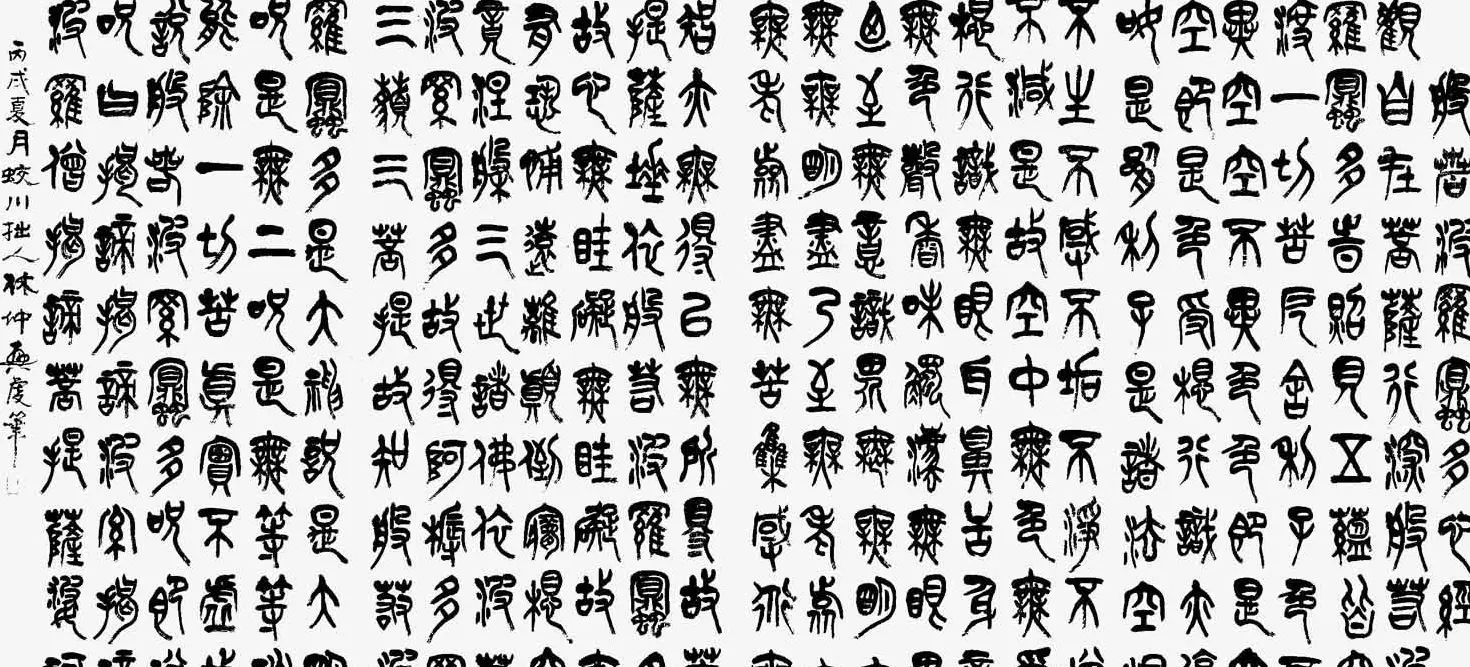 般若波羅蜜多心經
觀自在菩薩行深般若
羅蜜多時照見五蘊皆
度一切苦厄舍利子色
異空空不異色色即是
空即是色受想行識亦
如是舍利子是諸法空
不生不滅不垢不淨不
不減是故空中無色無
想行識無眼耳鼻舌身
無色聲香味觸法無眼
乃至無意識界無無明
無無明盡乃至無老死
無老死盡無苦集滅道
智亦無得以無所得故
提薩埵依般若波羅蜜
故心無罣礙無罣礙故
有恐怖遠離顛倒夢想
竟涅槃三世諸佛依般
波羅蜜多故得阿耨多
三藐三菩提故知般若
羅蜜多是大神咒是大
咒是無上咒是無等等
能除一切苦真實不虛
說般若波羅蜜多咒即
咒曰揭諦揭諦波羅揭
波羅僧揭諦菩提薩婆
丙戌夏月蛟川拙人林仲興虔筆